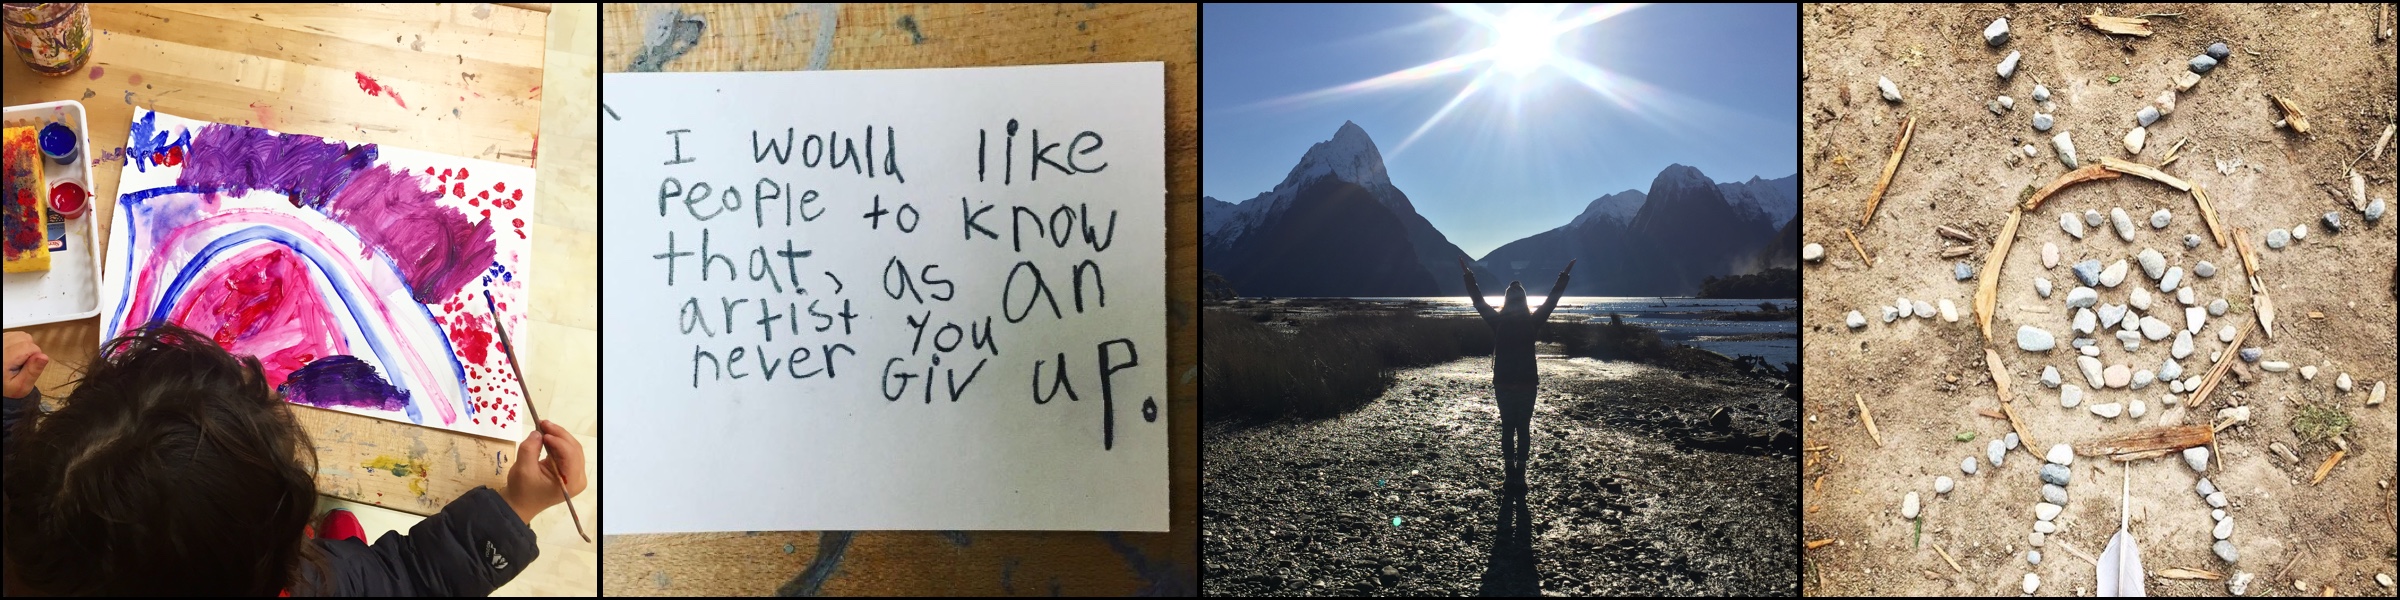 I would like
people to know
that, as an
artist you
never Giv up.